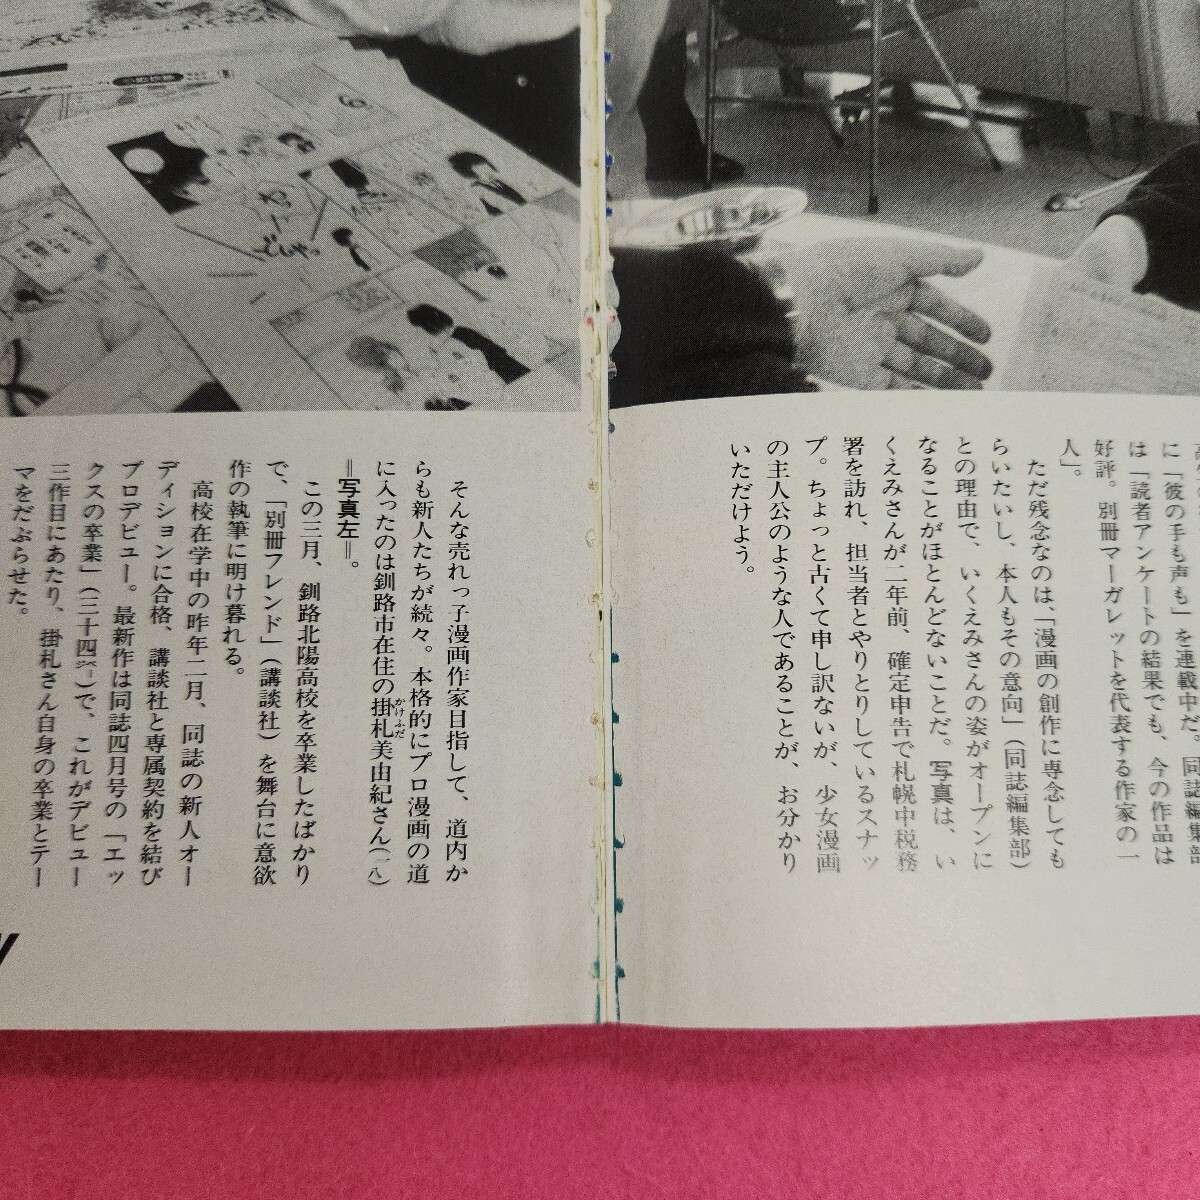 に「彼の手も声も」を連載中だ。同誌編集部
は「読者アンケートの結果でも、今の作品は
好評。別冊マーガレットを代表する作家の一
人」。
ただ残念なのは、「漫画の創作に専念しても
らいたいし、本人もその意向」（同誌編集部）
との理由で、いくえみさんの姿がオープンに
なることがほとんどないことだ。写真は、い
くえみさんが二年前、確定申告で札幌中税務
署を訪れ、担当者とやりとりしているスナッ
プ。ちょっと古くて申し訳ないが、少女漫画
の主人公のような人であることが、お分かり
いただけよう。
そんな売れっ子漫画作家目指して、道内か
らも新人たちが続々。本格的にプロ漫画の道
に入ったのは釧路市在住の掛札美由紀さん（一八）
かけふだ
＝写真左＝。
この三月、釧路北陽高校を卒業したばかり
で、「別冊フレンド」（講談社）を舞台に意欲
作の執筆に明け暮れる。
高校在学中の昨年二月、同誌の新人オー
ディションに合格、講談社と専属契約を結び
プロデビュー。最新作は同誌四月号の「エッ
クスの卒業」（三十四㌻）で、これがデビュー
三作目にあたり、掛札さん自身の卒業とテー
マをだぶらせた。
どしゃっ